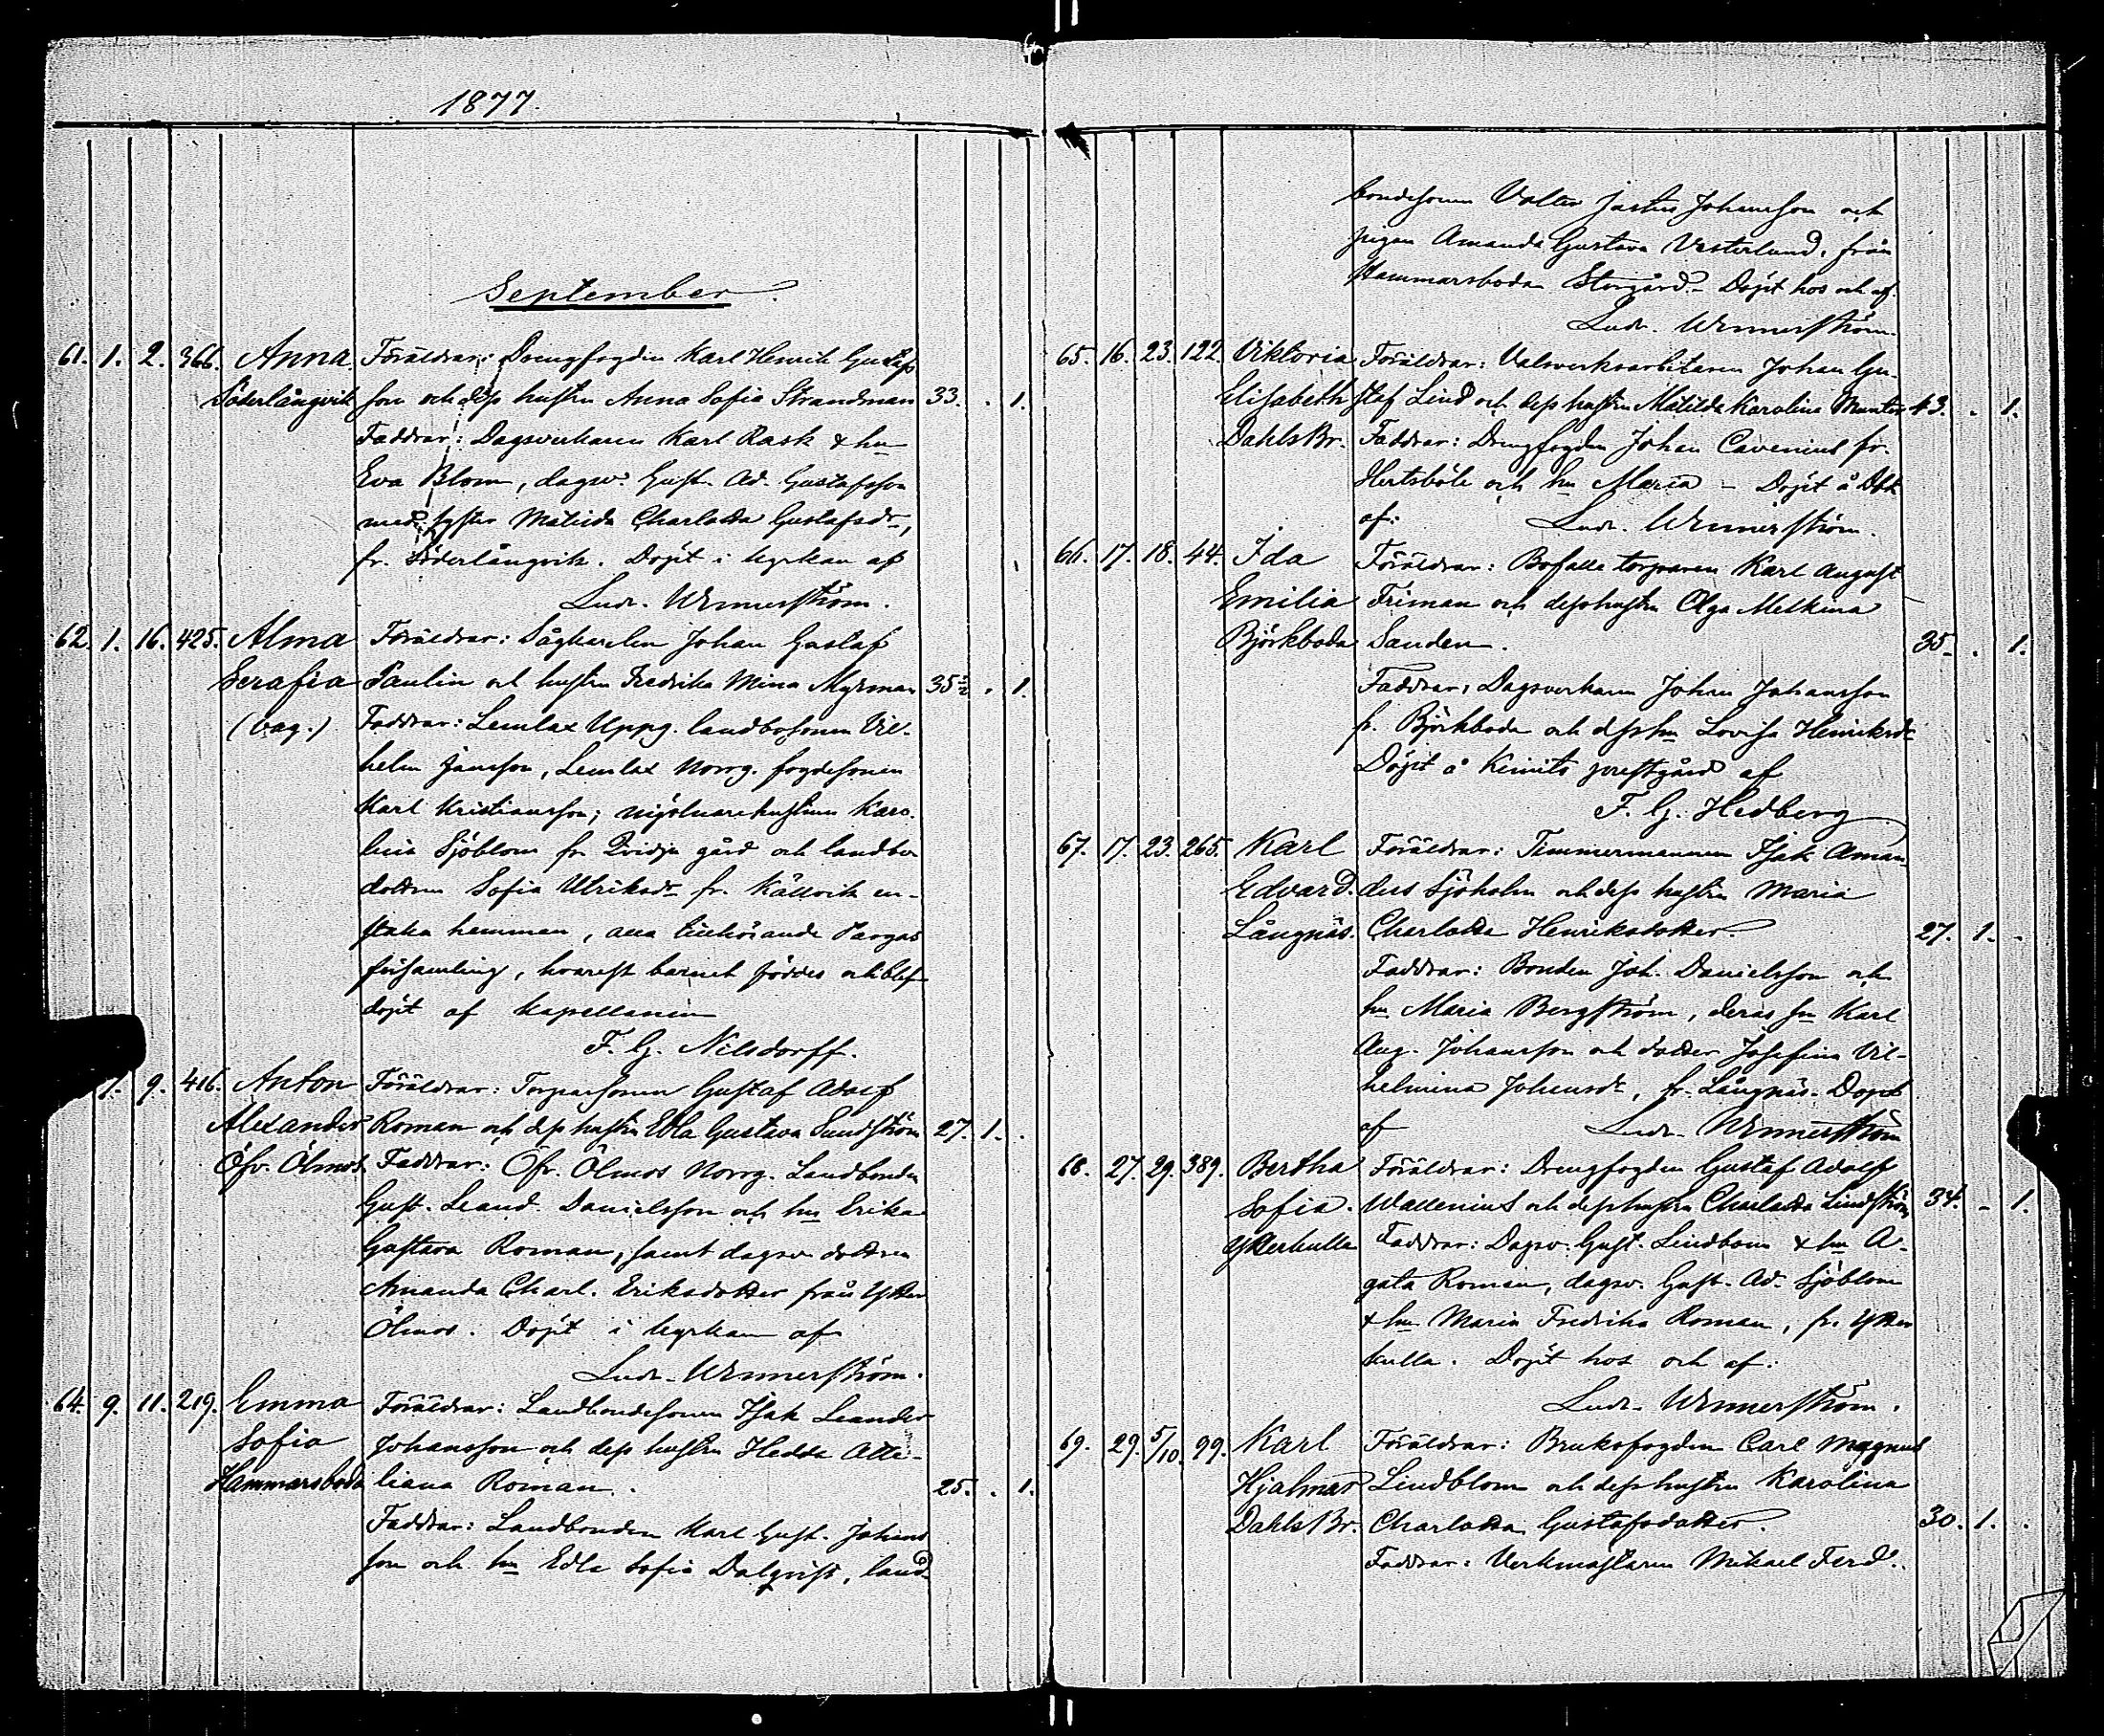 1877.
September.
61. 1. 2. 366. Anna Föräldrar: Drengfogden Karl Henrik Gustafs
Söderlångvik son och dess hustru Anna Sofia Strandman 33. . 1.
Faddrar: Dagsverkaren Karl Rask & hu
Eva Blom, dagsv. Gust. Ad. Gustafsson
med syster Matilda Charlotta Gustafsdr,
fr. Söderlångvik. Döpt i kyrkan af
Ludv. Wennerström.
62. 1. 16. 425. Alma Föräldrar: Sågkarlen Johan Gustaf
Serafia Paulin och hustru Fredrika Mina Myrman 35 . 1.
Faddrar: Lemlax Uppg. landbosonen Vil-
helm Jansson, Lemlax Norrg. fogdesonen
Karl Kristiansson; mjölnarehustrun Karo-
lina Sjöblom fr. Qvidja gård och landbo
dottren Sofia Ulriksdr fr. Källvik en-
staka hemman, alla tillhörande Pargas
församling, hvarest barnet föddes och blef
döpt af kapellanen
F. G. Nilsdorff.
1. 9. 416. Anton Föräldrar: Torparsonen Gustaf Adolf
Alexander Roman och dess hustru Edla Gustava Sundström 27. 1. .
Öfv. Ölmos Faddrar: Öfv. Ölmos Norrg. Landbonden
Gust. Leand. Danielsson och hu Erika
Gustava Roman, samt dagsv. dottren
Amanda Charl. Eriksdotter från Ytter
Ölmos. Döpt i kyrkan af
Ludv. Wennerström.
64. 9. 11. 219. Emma Föräldrar: Landbondesonen Isak Leander
Sofia Johansson och dess hustru Hedda Atte-
Hammarsboda liana Roman. 25. . 1.
Faddrar: Landbonden Karl Gust. Johans
son och hu Edla Sofia Dalqvist, land-
bondesonen Valter Justus Johansson och
pigan Amanda Gustava Vesterlund, från
Hammarsboda Storgård. Döpt hos och af.
Ludv. Wennerström.
65. 16. 23. 122. Viktoria Föräldrar: Valsverksarbetaren Johan Gu-
Elisabeth staf Lind och dess hustru Matilda Karolina 43. . 1.
Dahls Br. Faddrar: Drengfogden Johan Cavenius fr.
Hertsböle och hu Maria – Döpt å Dbk
af: Ludv. Wennerström.
66. 17. 18. 44. Ida Föräldrar: torparen Karl August
Emilia Friman och dess hustru Olga Melkina
Björkboda Sanden. 35. . 1.
Faddrar: Dagsverkaren Johan Johansson
fr. Björkboda och dess hu Lovisa Henriksdr
Döpt å Kimito prestgård af
F. G. Hedberg
67. 17. 23. 265. Karl Föräldrar: Timmermannen Isak Aman
Edvard. dus Sjöholm och dess hustru Maria
Långnäs. Charlotta Henriksdotter. 27. 1. .
Faddrar: Bonden Joh. Danielsson och
hu Maria Bergström, deras son Karl
Aug. Johansson och dotter Josefina Vil-
helmina Johansdr, fr. Långnäs. Döpt
af Ludv. Wennerström
68. 27. 29. 389. Bertha Föräldrar: Drengfogden Gustaf Adolf
Sofia. Wallenius och dess hustru Charlotta Lindström 34. – 1.
Ytterkulla Faddrar: Dagsv. Gust. Lindbom & hu A-
gata Roman, dagsv. Gust. Ad. Sjöblom
& hu Maria Fredrika Roman, fr. Ytter
kulla. Döpt hos och af:
Ludv. Wennerström.
69. 29. 5/10. 99. Karl Föräldrar: Bruksfogden Carl Magnus
Hjalmar Lindblom och dess hustru Karolina
Dahls Br. Charlotta Gustafsdotter. 30. 1. .
Faddrar: Verkmästaren Mikael Ferd.